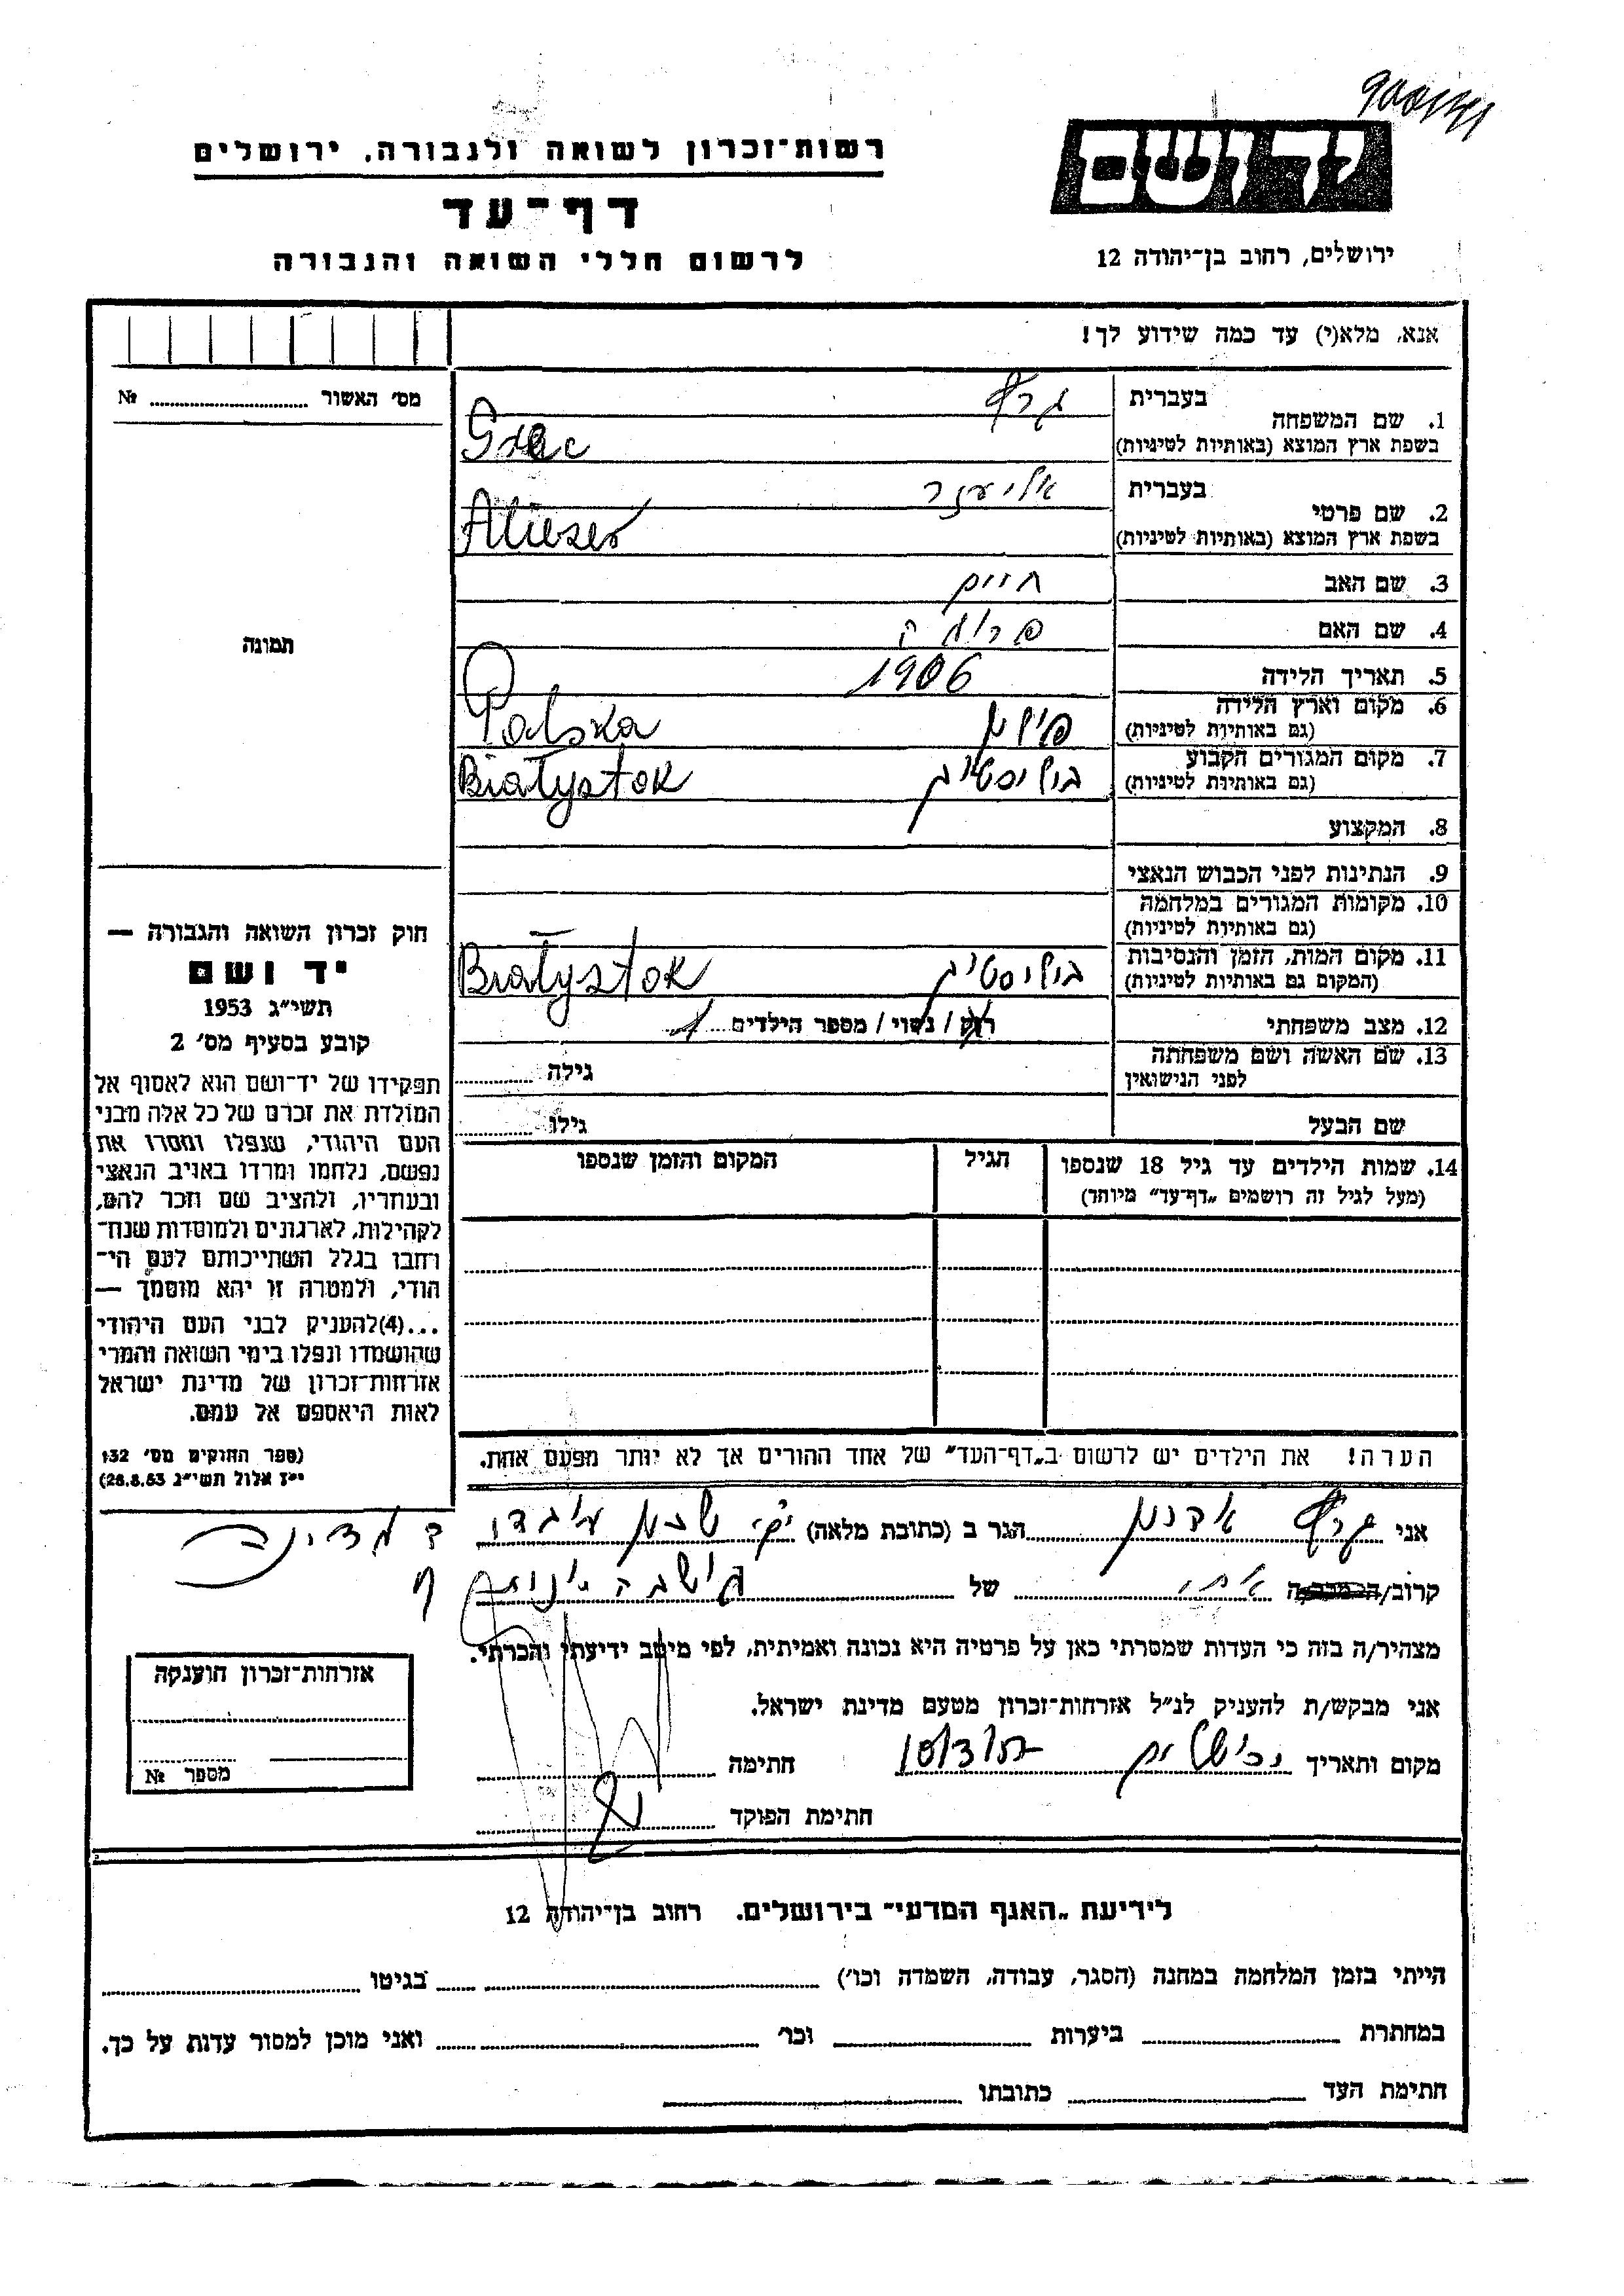 יד ושם
רשות־זכרון לשואה ולגבורה, ירושלים
דף־עד
לרשום חללי השואה והגבורה
ירושלים, רחוב בן־יהודה 12
אנא, מלא(י) עד כמה שידוע לך!
מס׳ האשור № 
1. שם המשפחה
בעברית גרף
בשפת ארץ המוצא (באותיות לטיניות)
2. שם פרטי
בעברית אליעזר
בשפת ארץ המוצא (באותיות לטיניות) Alieser
3. שם האב חיים
4. שם האם
5. תאריך הלידה 1906
6. מקום וארץ הלידה
(גם באותיות לטיניות) פולין Polska
7. מקום המגורים הקבוע
(גם באותיות לטיניות) ביליסטוק Białystok
8. המקצוע
9. הנתינות לפני הכבוש הנאצי
10. מקומות המגורים במלחמה
(גם באותיות לטיניות)
11. מקום המות, הזמן והנסיבות
(המקום גם באותיות לטיניות) Białystok
12. מצב משפחתי רוק / נשוי / מספר הילדים 1
13. שם האשה ושם משפחתה
לפני הנישואין גילה
שם הבעל גילו
14. שמות הילדים עד גיל 18 שנספו
(מעל לגיל זה רושמים „דף־עד” מיוחד)
הגיל
המקום והזמן שנספו
תמונה
חוק זכרון השואה והגבורה —
יד ושם
תשי״ג 1953
קובע בסעיף מס׳ 2
תפקידו של יד־ושם הוא לאסוף אל
המולדת את זכרם של כל אלה מבני
העם היהודי, שנפלו ומסרו את
נפשם, נלחמו ומרדו באויב הנאצי
ובעוזריו, ולהציב שם וזכר להם,
לקהילות, לארגונים ולמוסדות שנח־
רבו בגלל השתייכותם לעם הי־
הודי, ולמטרה זו יהא מוסמך —
...(4)להעניק לבני העם היהודי
שהושמדו ונפלו בימי השואה והמרי
אזרחות־זכרון של מדינת ישראל
לאות היאספם אל עמם.
(ספר החוקים מס׳ 132
י״ז אלול תשי״ג 28.8.53)
הערה! את הילדים יש לרשום ב„דף־העד” של אחד ההורים אך לא יותר מפעם אחת.
אני גרף הגר ב (כתובת מלאה)
קרוב/ה של
מצהיר/ה בזה כי העדות שמסרתי כאן על פרטיה היא נכונה ואמיתית, לפי מיטב ידיעתי והכרתי.
אני מבקש/ת להעניק לנ״ל אזרחות־זכרון מטעם מדינת ישראל.
מקום ותאריך חתימה
חתימת הפוקד
אזרחות־זכרון הוענקה
מספר №
לידיעת „האגף המדעי” בירושלים. רחוב בן־יהודה 12
הייתי בזמן המלחמה במחנה (הסגר, עבודה, השמדה וכו׳) בגיטו
במחתרת ביערות וכו׳ ואני מוכן למסור עדות על כך.
חתימת העד כתובתו